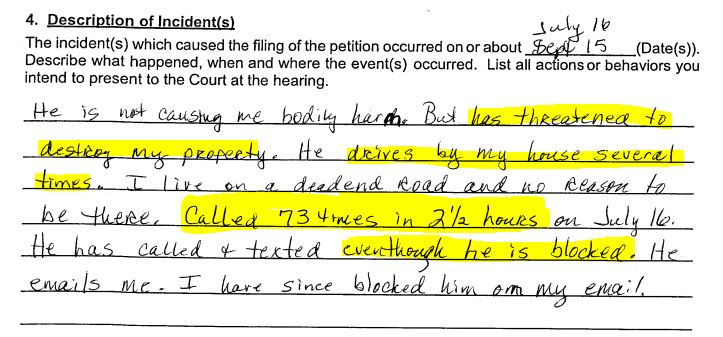 4. Description of Incident(s)
July 16
The incident(s) which caused the filing of the petition occurred on or about Sept 15 (Date(s)).
Describe what happened, when and where the event(s) occurred. List all actions or behaviors you
intend to present to the Court at the hearing.
He is not causing me bodily harm. But has threatened to
destroy my property. He drives by my house several
times. I live on a deadend road and no reason to
be there. Called 73 times in 2 1/2 hours on July 16.
He has called & texted eventhough he is blocked. He
emails me. I have since blocked him om my email.